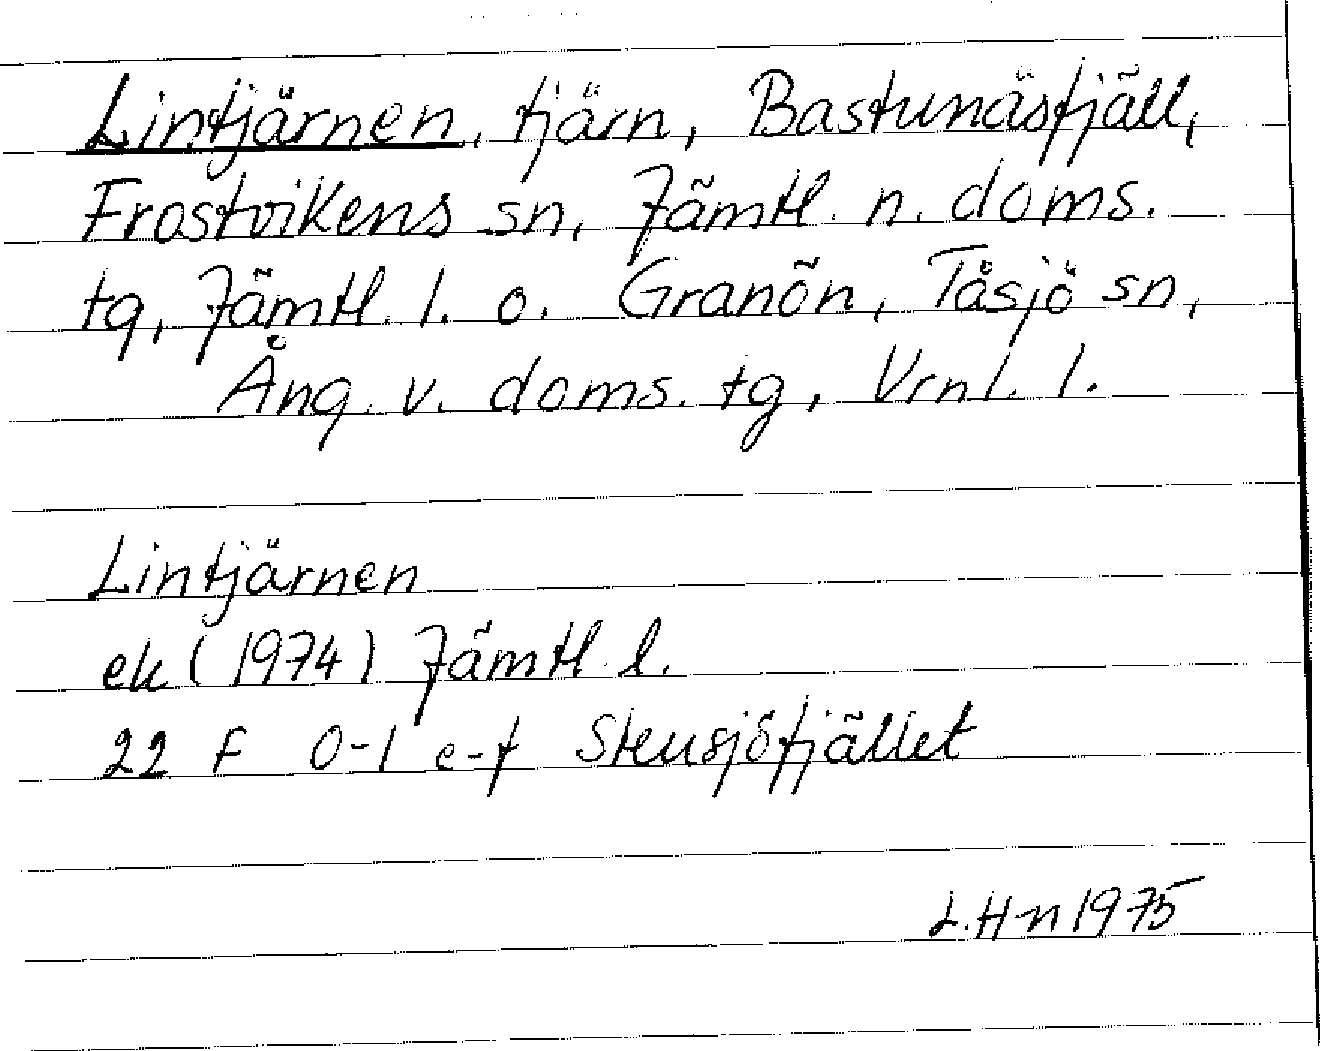 Lintjärnen, tjärn, Bastunäsfjäll,
Frostvikens sn, Jämtl. n. doms.
tg, Jämtl. l. o. Granön, Tåsjö sn,
Ång. v. doms. tg, Vrnl. l.
Lintjärnen
ek (1974) Jämtl. l.
22 F 0-1 e-f Stensjöfjället
L.Hn 1975